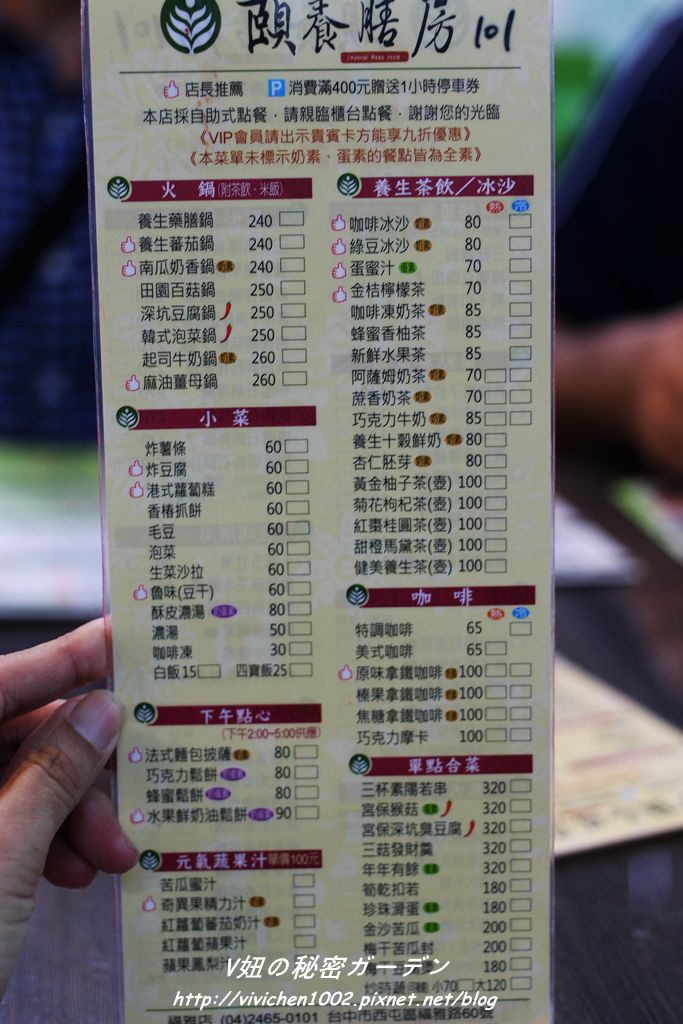 頤養膳房 101
Imperial Meals room
店長推薦 P 消費滿400元贈送1小時停車券
本店採自助式點餐‧請親臨櫃台點餐‧謝謝您的光臨
《VIP會員請出示貴賓卡方能享九折優惠》
《本菜單未標示奶素、蛋素的餐點皆為全素》
火鍋(附茶飲‧米飯)
養生藥膳鍋 240
養生蕃茄鍋 240
南瓜奶香鍋 奶素 240
田園百菇鍋 250
深坑豆腐鍋 250
韓式泡菜鍋 250
起司牛奶鍋 奶素 260
麻油薑母鍋 260
小菜
炸薯條 60
炸豆腐 60
港式蘿蔔糕 60
香椿抓餅 60
毛豆 60
泡菜 60
生菜沙拉 60
魯味(豆干) 60
酥皮濃湯 80
濃湯 50
咖啡凍 30
白飯15 四寶飯25
下午點心
(下午2:00~5:00供應)
法式麵包披薩 奶素 80
巧克力鬆餅 80
蜂蜜鬆餅 80
水果鮮奶油鬆餅 90
元氣蔬果汁 單價100元
苦瓜蜜汁
奇異果精力汁
紅蘿蔔蕃茄奶汁
紅蘿蔔蘋果汁
蘋果鳳梨汁
養生茶飲/冰沙
熱 冷
咖啡冰沙 奶素 80
綠豆冰沙 奶素 80
蛋蜜汁 蛋素 70
金桔檸檬茶 70
咖啡凍奶茶 奶素 85
蜂蜜香柚茶 85
新鮮水果茶 85
阿薩姆奶茶 奶素 70
蔗香奶茶 奶素 70
巧克力牛奶 奶素 85
養生十穀鮮奶 奶素 80
杏仁胚芽 奶素 80
黃金柚子茶(壺) 100
菊花枸杞茶(壺) 100
紅棗桂圓茶(壺) 100
甜橙馬黛茶(壺) 100
健美養生茶(壺) 100
咖啡
熱 冷
特調咖啡 65
美式咖啡 65
原味拿鐵咖啡 100
榛果拿鐵咖啡 100
焦糖拿鐵咖啡 100
巧克力摩卡 100
單點合菜
三杯素陽若串 320
宮保猴菇 320
宮保深坑臭豆腐 320
三菇發財羹 320
年年有餘 320
筍乾扣若 180
珍珠滑蛋 180
金沙苦瓜 200
梅干苦瓜封 200
180
炒時蔬 小70 大120
福雅店 (04)2465-0101 台中市西屯區福雅路60號
V妞の秘密ガーデン
http://vivichen1002.pixnet.net/blog